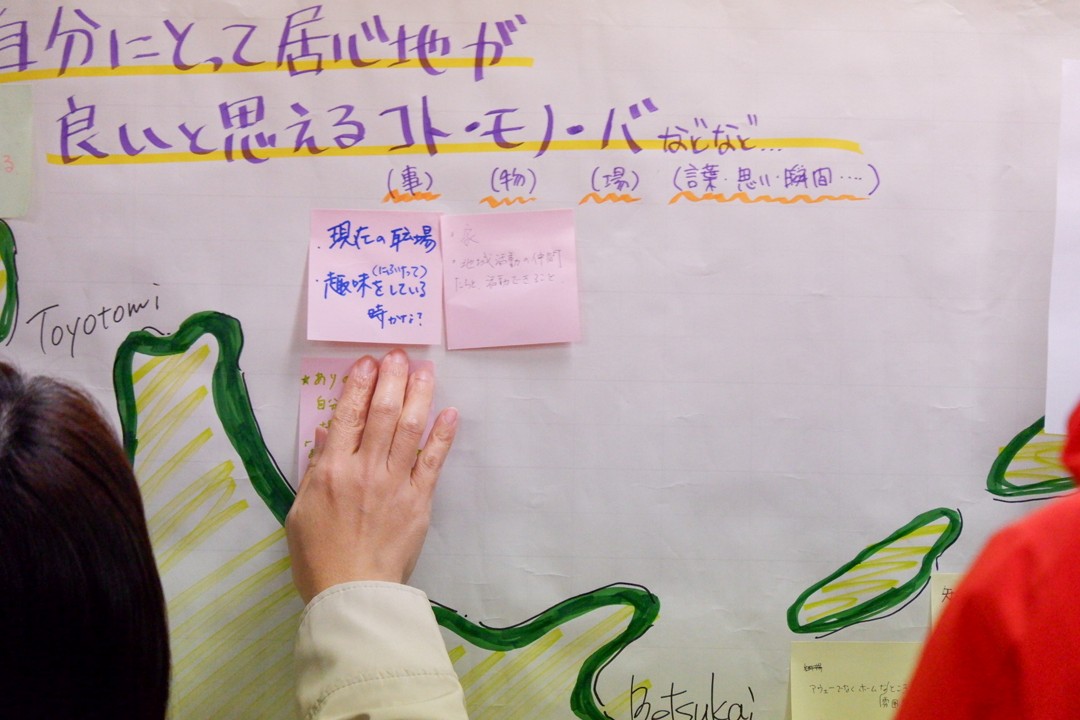 自分にとって居心地が
良いと思えるコト・モノ・バ などなど...
(事) (物) (場) (言葉・思い・瞬間....)
・現在の職場
・趣味をしている
(にふけって)
時かな?
・家
・地域活動の仲間
たちと活動できること
★あり
自分
Toyotomi
Betsukai
アウェーでなくホームなところ